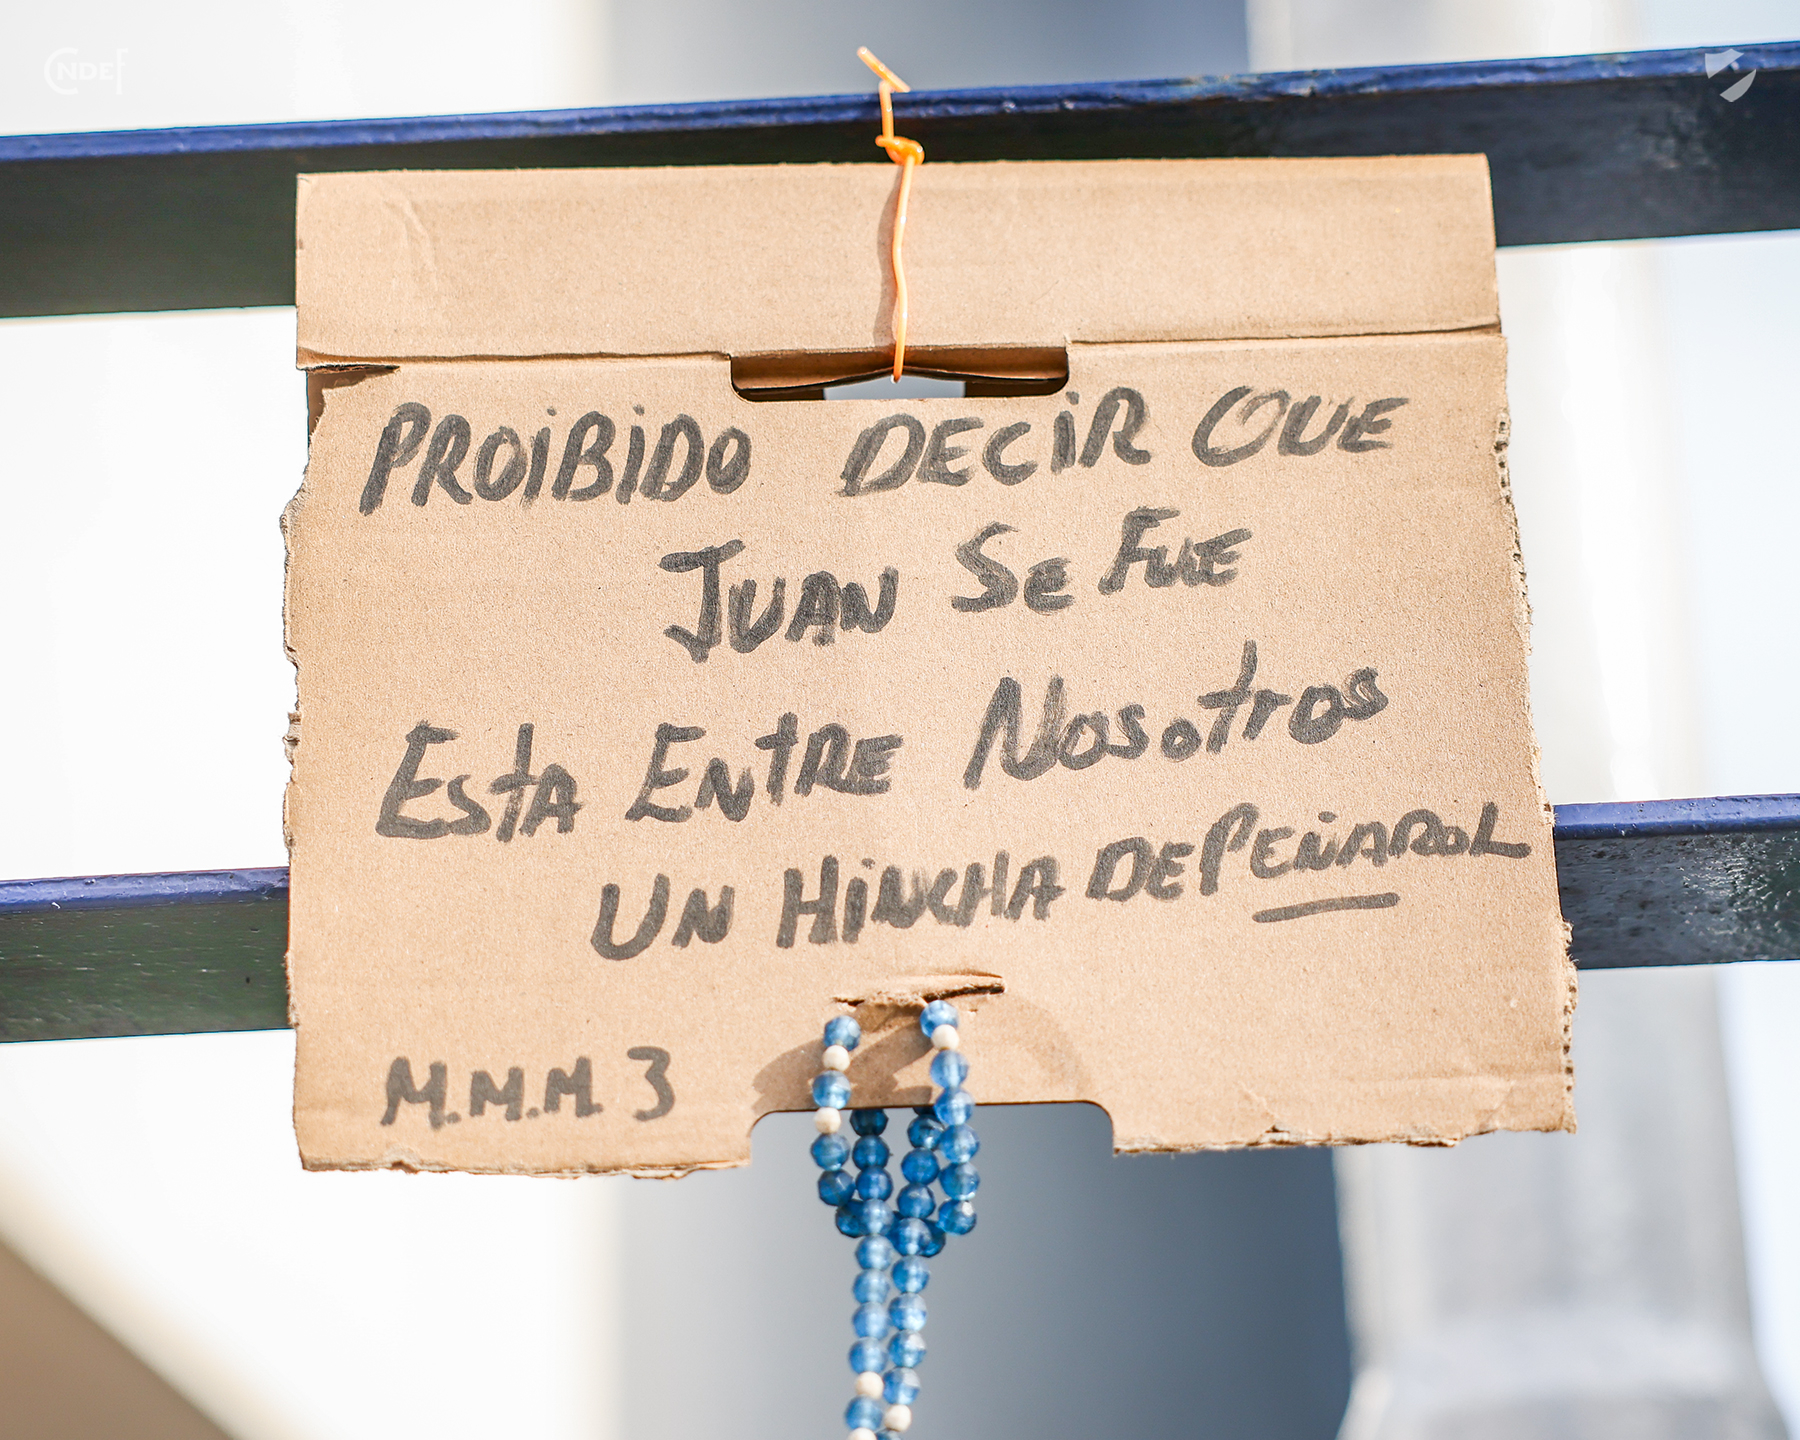 CNDEf
PROiBiDO DECiR QUE
JUAN Se FUE
EstA ENtRE Nosotros
UN HiNCHA DE PEÑAROL
M.M.M. 3